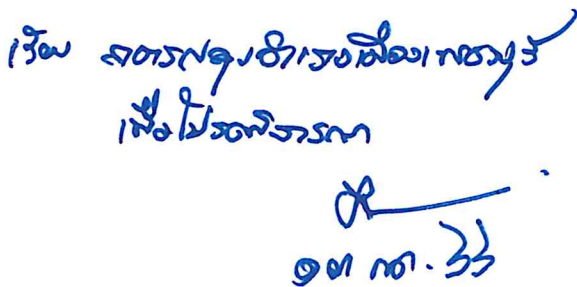 เรียน สาธารณสุขอำเภอเมืองเพชรบุรี
เพื่อโปรดพิจารณา
๑๓ กค. ๖๖